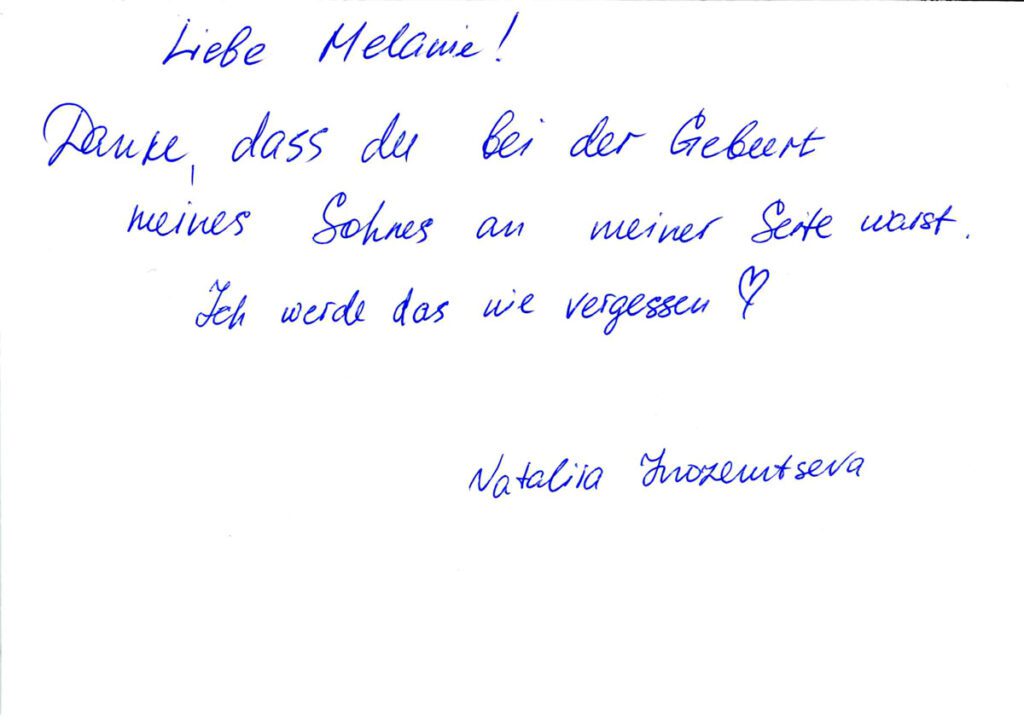 Liebe Melanie!
Danke, dass du bei der Geburt
meines Sohnes an meiner Seite warst.
Ich werde das nie vergessen ♡
Nataliia Inozemtseva